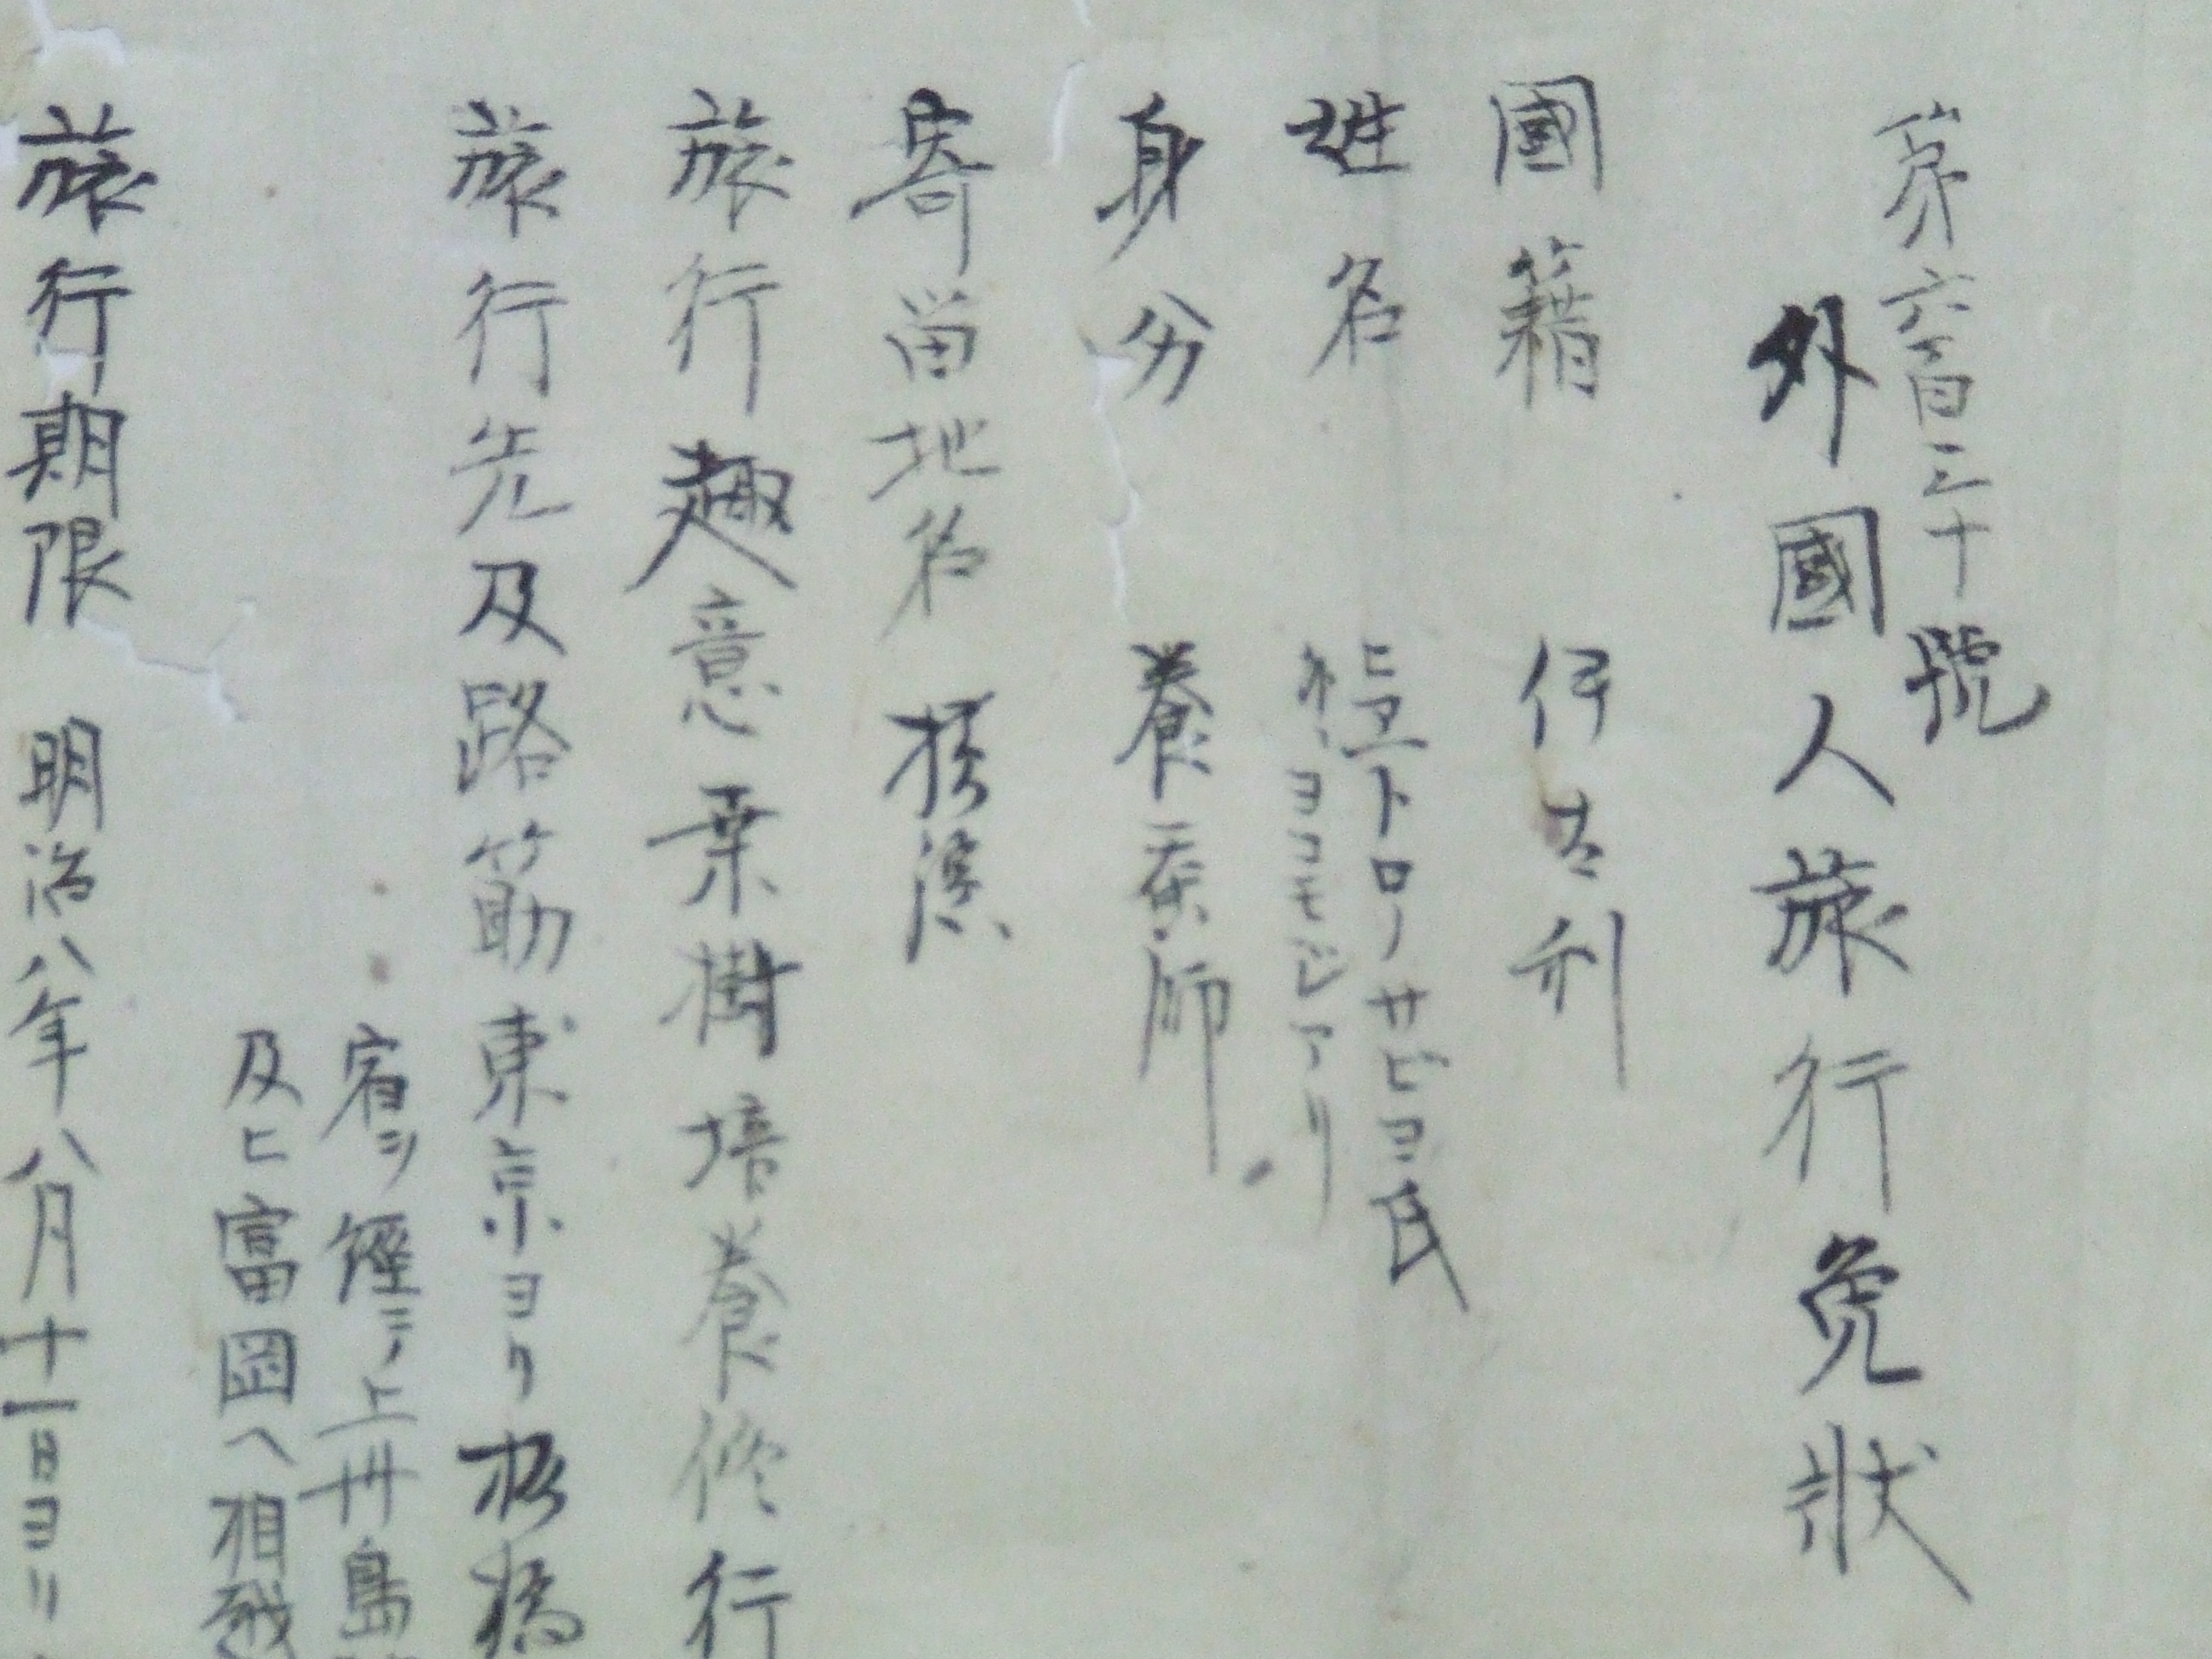 第六百三十號
外國人旅行免狀
國籍 伊太利
姓名 ピエトローサビヨ氏
ヨコモジアリ
身分 養蚕師
寄留地名 横濱
旅行趣意 桒樹培養修行
旅行先及路筋 東京ヨリ板橋
宿ヲ経テ上州島
及ヒ富岡ヘ相越
旅行期限 明治八年八月十一日ヨリ